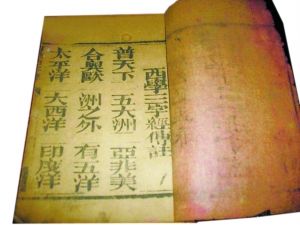 西學三字經傳註
普天下 五大洲 亞非美
合與歐 洲之外 有五洋
太平洋 大西洋 印度洋